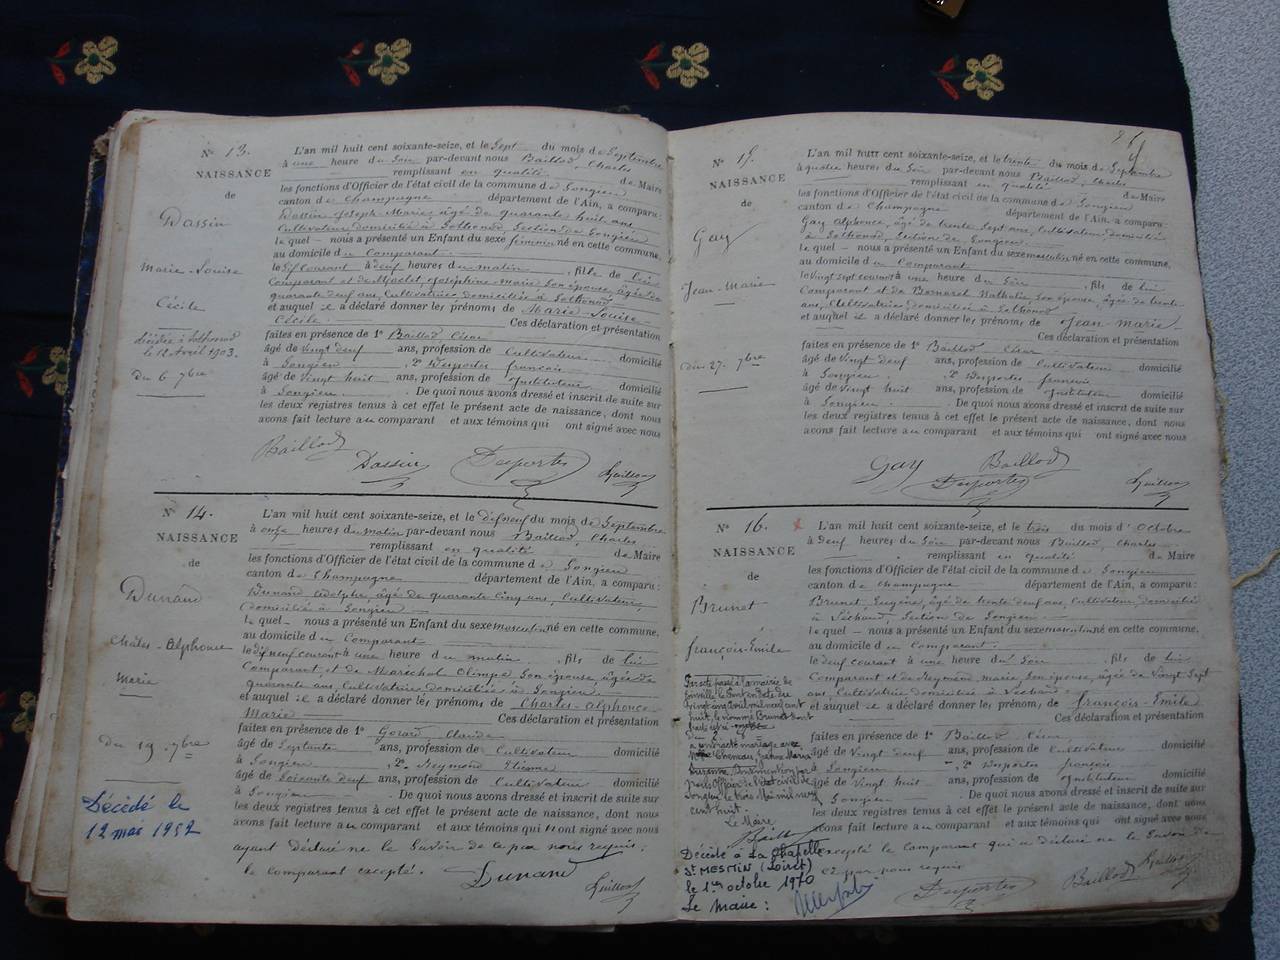 N° 13.
NAISSANCE
de
Dassin
Marie-Louise
Cécile
décédée à Sothonod
le 12 Avril 1903.
Du 6 7bre
L'an mil huit cent soixante-seize, et le Sept du mois de Septembre
à une heure du Soir par-devant nous Baillod, Charles
remplissant en qualité de Maire
les fonctions d'Officier de l'état civil de la commune de Songieu
canton de Champagne département de l'Ain, a comparu:
Dassin Joseph Marie, âgé de quarante huit ans,
Cultivateur domicilié à Sothonod, Section de Songieu
lequel nous a présenté un Enfant du sexe féminin né en cette commune,
au domicile du Comparant
le Six Courant à deux heures du matin, fille de lui
Comparant et de Joséphine Marie, Son épouse, âgée de
quarante deux ans, Cultivatrice domiciliée à Sothonod
et auquel il a déclaré donner les prénoms de Marie Louise
Cécile. Ces déclaration et présentation
faites en présence de 1° Baillod César
âgé de Vingt neuf ans, profession de Cultivateur domicilié
à Songieu, 2° Desportes françois
âgé de Vingt huit ans, profession de Instituteur domicilié
à Songieu. De quoi nous avons dressé et inscrit de suite sur
les deux registres tenus à cet effet le présent acte de naissance, dont nous
avons fait lecture au comparant et aux témoins qui ont signé avec nous
Baillod Dassin Desportes
N° 14.
NAISSANCE
de
Dunand
Charles-Alphonse
Marie
Du 19 7bre
Décédé le
12 mai 1952
L'an mil huit cent soixante-seize, et le dix neuf du mois de Septembre
à onze heures du matin par-devant nous Baillod, Charles
remplissant en qualité de Maire
les fonctions d'Officier de l'état civil de la commune de Songieu
canton de Champagne département de l'Ain, a comparu:
Dunand Adolphe, âgé de quarante Cinq ans, Cultivateur
domicilié à Songieu
lequel nous a présenté un Enfant du sexe masculin né en cette commune,
au domicile du Comparant
le dix neuf courant à une heure du matin, fils de lui
Comparant, et de Maréchal Olimpe, Son épouse, âgée de
quarante ans, Cultivatrice domiciliée à Songieu
et auquel il a déclaré donner les prénoms de Charles-Alphonse
Marie Ces déclaration et présentation
faites en présence de 1° Gérard, Claude
âgé de Septante ans, profession de Cultivateur domicilié
à Songieu, 2° Reymond Etienne
âgé de Soixante neuf ans, profession de Cultivateur domicilié
à Songieu. De quoi nous avons dressé et inscrit de suite sur
les deux registres tenus à cet effet le présent acte de naissance, dont nous
avons fait lecture au comparant et aux témoins qui n'ont signé avec nous
ayant déclaré ne le Savoir de ce par nous requis,
le comparant excepté. Dunand
N° 15.
NAISSANCE
de
Gay
Jean-Marie
du 27. 7bre
L'an mil huit cent soixante-seize, et le trente du mois de Septembre
à quatre heures du Soir par-devant nous Baillod, Charles
remplissant en qualité de Maire
les fonctions d'Officier de l'état civil de la commune de Songieu
canton de Champagne département de l'Ain, a comparu:
Gay Alphonse, âgé de trente Sept ans, Cultivateur, domicilié
à Sothonod, Section de Songieu
lequel nous a présenté un Enfant du sexe masculin né en cette commune,
au domicile du Comparant
le Vingt Sept courant à une heure du Soir, fils de lui
Comparant et de Nathalie, Son épouse, âgée de trente
ans, Cultivatrice domiciliée à Sothonod
et auquel il a déclaré donner les prénoms de Jean-Marie
Ces déclaration et présentation
faites en présence de 1° Baillod César
âgé de Vingt neuf ans, profession de Cultivateur domicilié
à Songieu, 2° Desportes françois
âgé de Vingt huit ans, profession de Instituteur domicilié
à Songieu. De quoi nous avons dressé et inscrit de suite sur
les deux registres tenus à cet effet le présent acte de naissance, dont nous
avons fait lecture au comparant et aux témoins qui ont signé avec nous
Gay Baillod
Desportes
N° 16.
NAISSANCE
de
Brunet
françois-Emile
Par acte passé à la mairie de
Joinville le Pont en date du
Vingt cinq avril mil neuf cent
huit, le nommé Brunet
a contracté mariage avec
Suzanne,
Officier de l'état civil de
Songieu le trois Mai mil neuf
cent huit.
Le Maire
Décédé à La Chapelle
St MESMIN (Loiret)
le 1er octobre 1970
Le Maire:
L'an mil huit cent soixante-seize, et le trois du mois d'Octobre
à Deux heures du Soir par-devant nous Baillod, Charles
remplissant en qualité de Maire
les fonctions d'Officier de l'état civil de la commune de Songieu
canton de Champagne département de l'Ain, a comparu:
Brunet Eugène, âgé de trente deux ans, Cultivateur domicilié
à Section de Songieu
lequel nous a présenté un Enfant du sexe masculin né en cette commune,
au domicile du Comparant.
le deux courant à une heure du Soir, fils de lui
Comparant et de Reymond, Marie, Son épouse, âgée de Vingt Sept
ans, Cultivatrice domiciliée à
et auquel il a déclaré donner les prénoms de françois-Emile
Ces déclaration et présentation
faites en présence de 1° Baillod César
âgé de Vingt neuf ans, profession de Cultivateur domicilié
à Songieu, 2° Desportes françois
âgé de Vingt huit ans, profession de Instituteur domicilié
à Songieu. De quoi nous avons dressé et inscrit de suite sur
les deux registres tenus à cet effet le présent acte de naissance, dont nous
avons fait lecture au comparant et aux témoins qui ont signé avec nous
excepté le Comparant qui a déclaré ne le Savoir de
ce par nous requis
Desportes Baillod